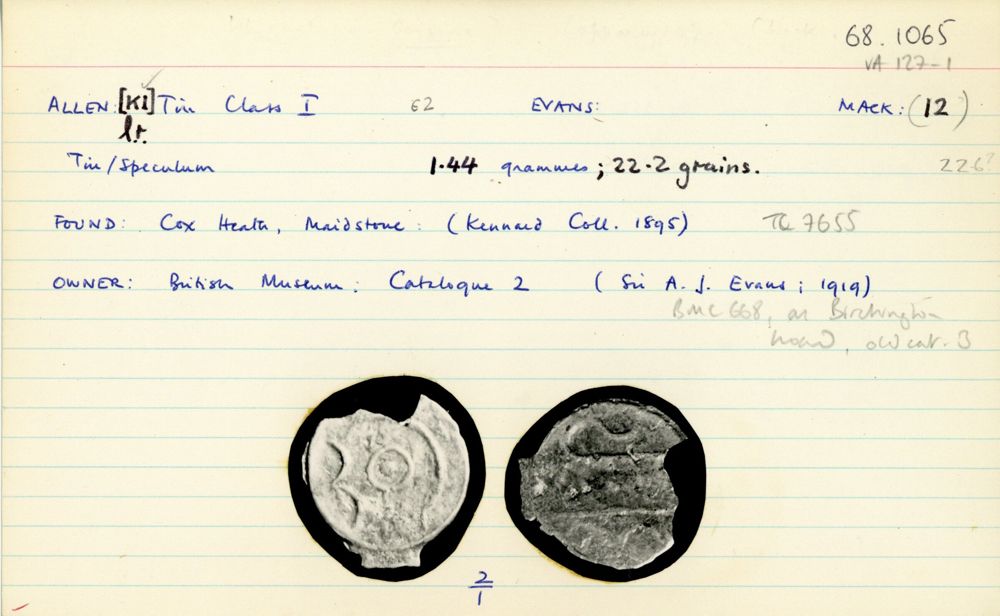 68.1065
VA 127-1
ALLEN: [KI] Tin Class I 62 EVANS: MACK: (12)
lt.
Tin/Speculum 1.44 grammes; 22.2 grains. 22.6?
FOUND: Cox Heath, Maidstone: (Kennard Coll. 1895) TQ 7655
OWNER: British Museum: Catalogue 2 (Sir A. J. Evans; 1919)
BMC 668, as Birchington
hoard, old cat. 3
2
1